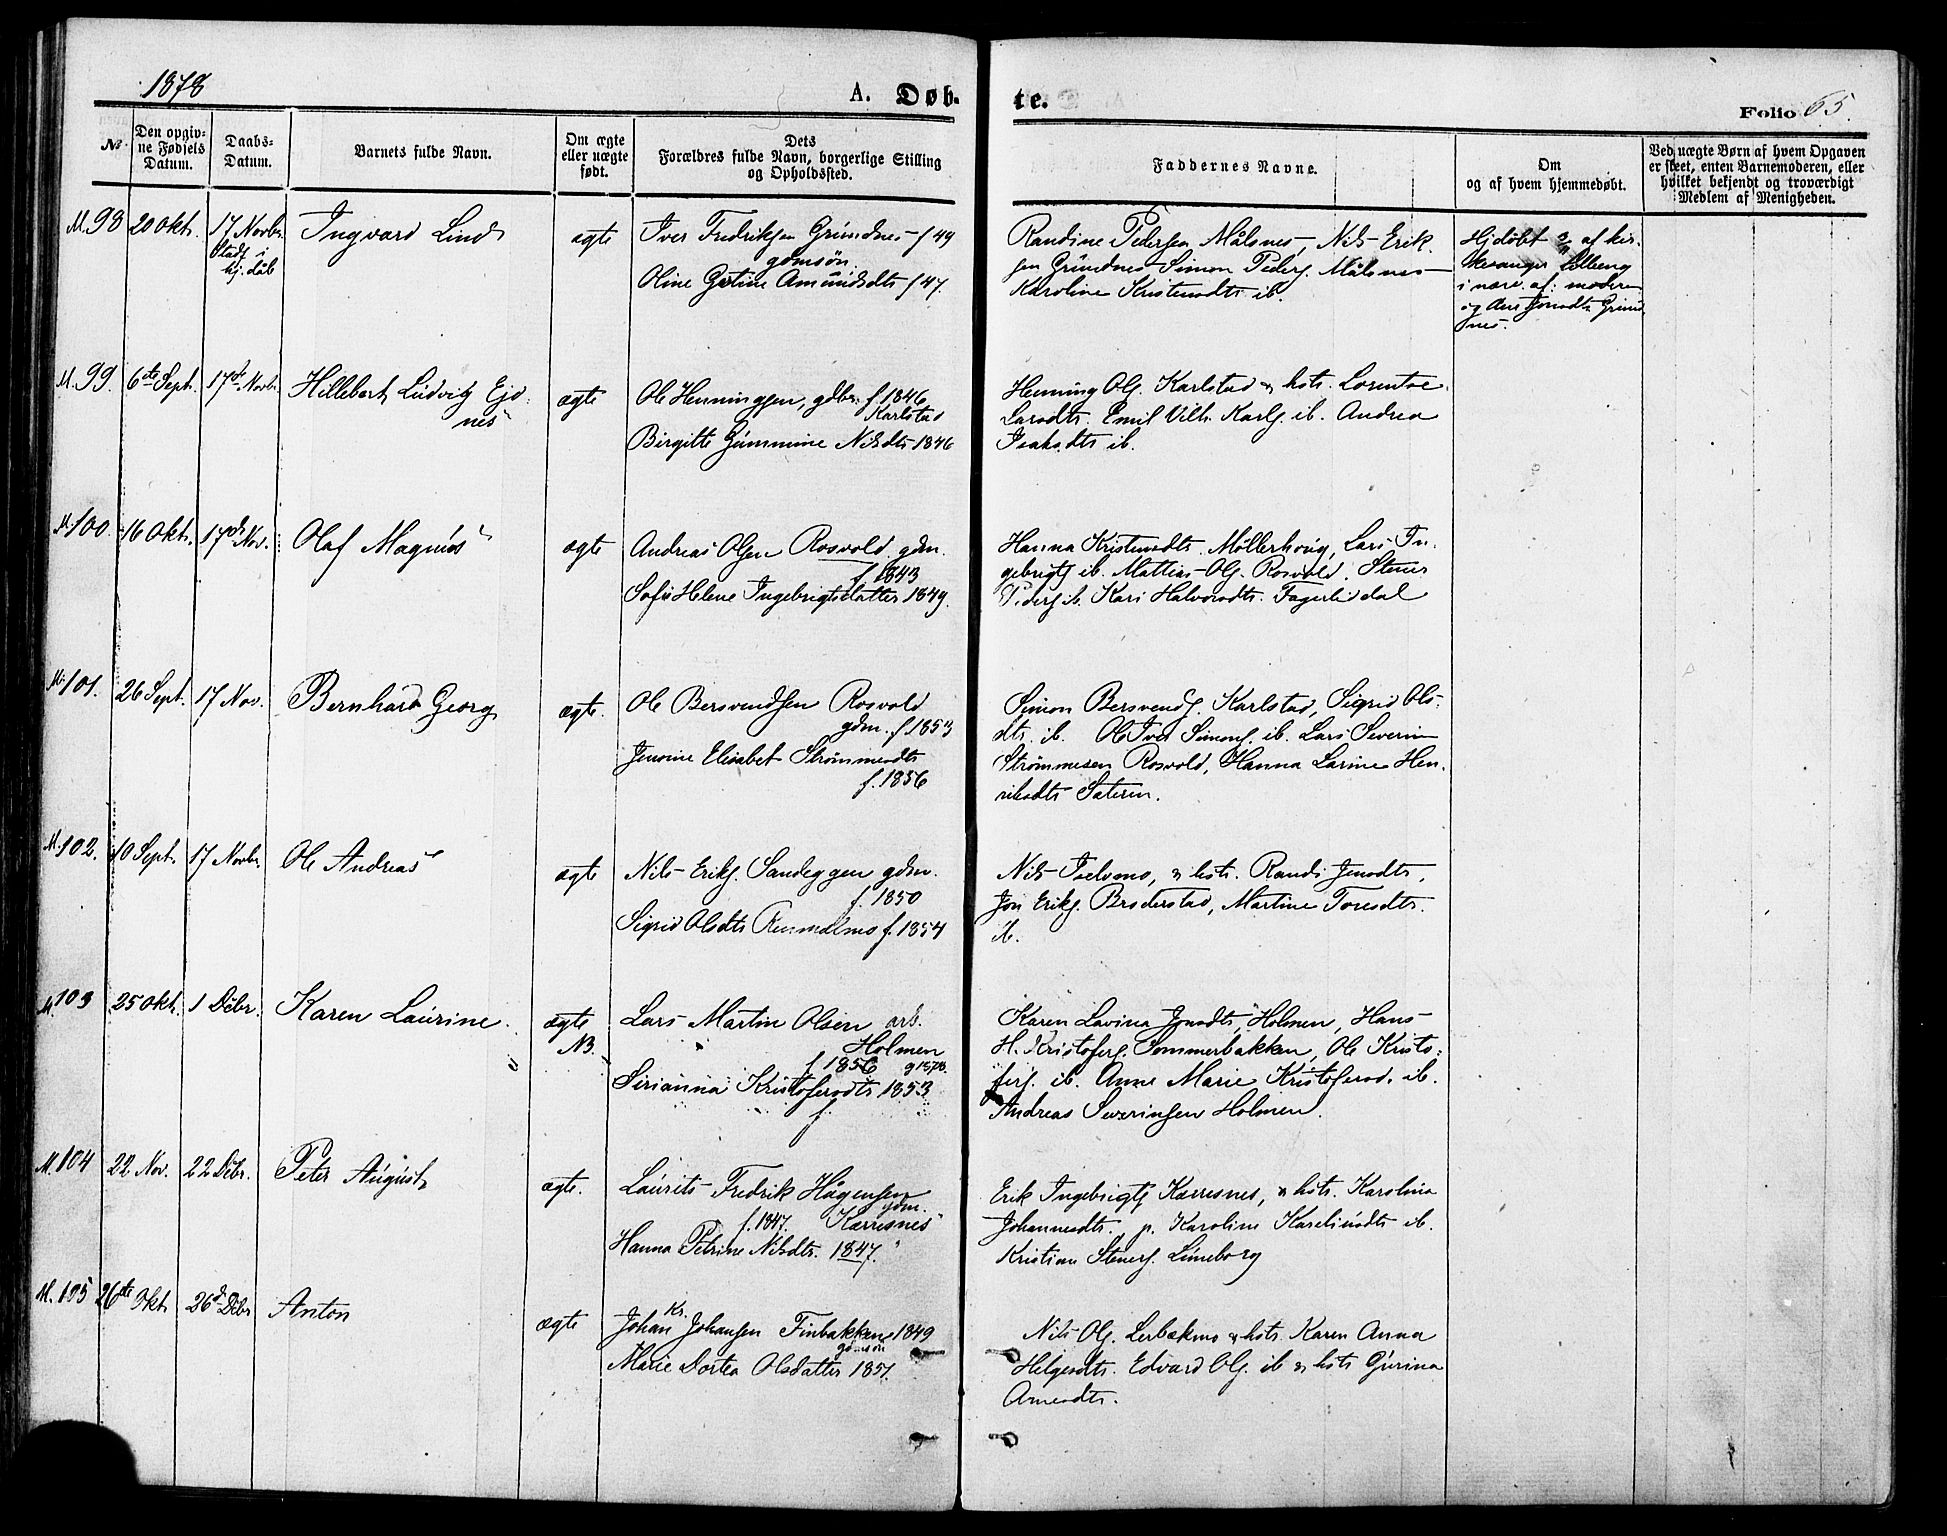 1878
A. Døb-
te.
Folio 65.
No
Den opgiv-
ne Fødsels
Datum.
Daabs-
Datum.
Barnets fulde Navn.
Om ægte
eller uægte
født.
Dets
Forældres fulde Navn, borgerlige Stilling
og Opholdssted.
Faddernes Navne.
Om
og af hvem hjemmedøbt.
Ved uægte Børn af hvem Opgaven
er skeet, enten Barnemoderen, eller
hvilket bekjendt og troværdigt
Medlem af Menigheden.
M. 98
20 Okt.
17 Novbr.
Stadf. i
hj. dåb
Ingvard Lind
ægte
Iver Fredriksen Grundnes f 49
gdmsøn.
Oline Gjetine Amundsdtr f 47.
Randine Pedersen Målsnes, Nils Erik-
sen Grundnes Simon Peders. Målsnes
Karoline Kristensdtr ib.
Hjdøbt af kir-
i nærv. af moderen
og Jonsdtr Grund
nes.
M. 99.
6te Sept.
17de Novbr.
Hillebert Ludvig Ejd-
nes
ægte
Ole Henningsen, gdbr. f. 1846
Karlstad
Birgitte Gummine Nilsdtr 1846
Henning Ols. Karlstad & hstr. Lorentse
Larsdtr. Emil Vilh. Karls. ib. Andrea
Isaksdtr ib.
M. 100.
16 Okt.
17de Nov.
Olaf Magnus
ægte
Andreas Olsen Rosvold gdm.
f 1843
Sofie Helene Ingebrigtsdatter 1849.
Hanna Kristensdtr. Møllerhoug, Lars In-
gebrigts ib. Mattias Ols. Rosvold. Stener
Peders ib. Kari Halvorsdtr. Fagerlidal
M. 101.
26 Sept.
17 Nov.
Bernhard Georg
ægte.
Ole Bersvendsen Rosvold
gdm. f. 1853
Jensine Elisabet Strømmesdtr
f. 1856
Simon Bersvends. Karlstad, Sigrid Ols-
dtr. ib. Ole Iver Simons. ib. Lars Severin
Strømmesen Rosvold, Hanna Larine Hen-
riksdtr Sateren.
M. 102.
10 Sept.
17 Novbr.
Ole Andreas
ægte
Nils Eriks. Sandeggen gdm.
f. 1850
Sigrid Olsdtr Rundmo f. 1854
Nils Iselvmo, & hstr. Randi Jensdtr,
Jon Eriks. Broderstad, Martine Toresdtr.
ib.
M. 103
25 Okt.
1 Dcbr.
Karen Laurine
ægte
NB.
Lars Martin Olsen arb.
Holmen
f 1856 g 1878.
Sirianna Kristofersdtr 1853
f.
Karen Lavina Jonsdtr, Holmen, Hans
H. Kristofers. Sommerbakken, Ole Kristo-
fers. ib. Anne Marie Kristofersd. ib.
Andreas Severinsen Holmen.
M. 104
22 Nov.
22 Dcbr.
Peter August
ægte.
Laurits Fredrik Hågensen
gdm.
f. 1847. Kærresnes
Hanna Petrine Nilsdtr. 1847. "
Erik Ingebrigts Kærresnes, & hstr. Karolina
Johannesdtr, p. Karoline Kareliusdtr ib.
Kristian Steners. Luneborg
M. 105
26te Okt
26de Dcbr
Anton
ægte
Kr.
Johan Johansen Finbakken 1849
gdmsøn
Marie Dortea Olsdatter 1851.
Nils Ols. Lerbækmo & hstr. Karen Anna
Helgesdtr. Edvard Ols. ib & hstr Gurina
Arnesdtr.